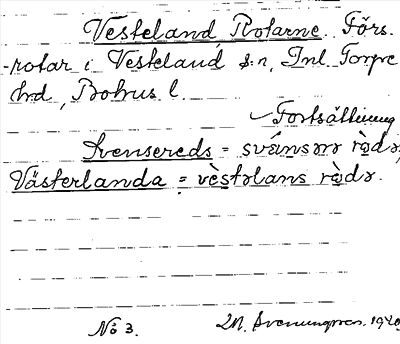 Vesteland Rotarne. Förs.
-rotar i Vesteland s:n, Inl. Torpe
hrd, Bohus l.
Fortsättning
Svensereds = svánsər rə̀dər,
Västerlanda = vèstərlans rə̀dər.
No 3. M. Svenungsson. 1920